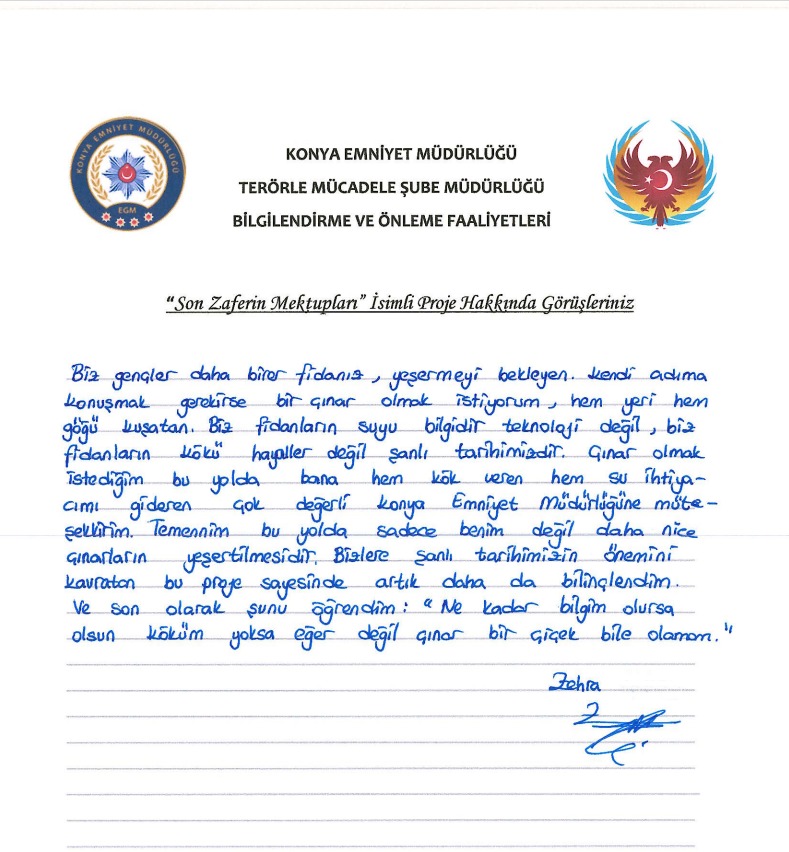 KONYA EMNİYET MÜDÜRLÜĞÜ
EGM
KONYA EMNİYET MÜDÜRLÜĞÜ
TERÖRLE MÜCADELE ŞUBE MÜDÜRLÜĞÜ
BİLGİLENDİRME VE ÖNLEME FAALİYETLERİ
“Son Zaferin Mektupları” İsimli Proje Hakkında Görüşleriniz
Biz gençler daha birer fidanız, yeşermeyi bekleyen. Kendi adıma
konuşmak gerekirse bir çınar olmak istiyorum, hem yeri hem
göğü kuşatan. Biz fidanların suyu bilgidir teknoloji değil, biz
fidanların kökü hayaller değil şanlı tarihimizdir. Çınar olmak
istediğim bu yolda bana hem kök veren hem su ihtiya-
cımı gideren çok değerli Konya Emniyet Müdürlüğüne müte-
şekkirim. Temennim bu yolda sadece benim değil daha nice
çınarların yeşertilmesidir. Bizlere şanlı tarihimizin önemini
kavratan bu proje sayesinde artık daha da bilinçlendim.
Ve son olarak şunu öğrendim: "Ne kadar bilgim olursa
olsun köküm yoksa eğer değil çınar bir çiçek bile olamam."
Zehra